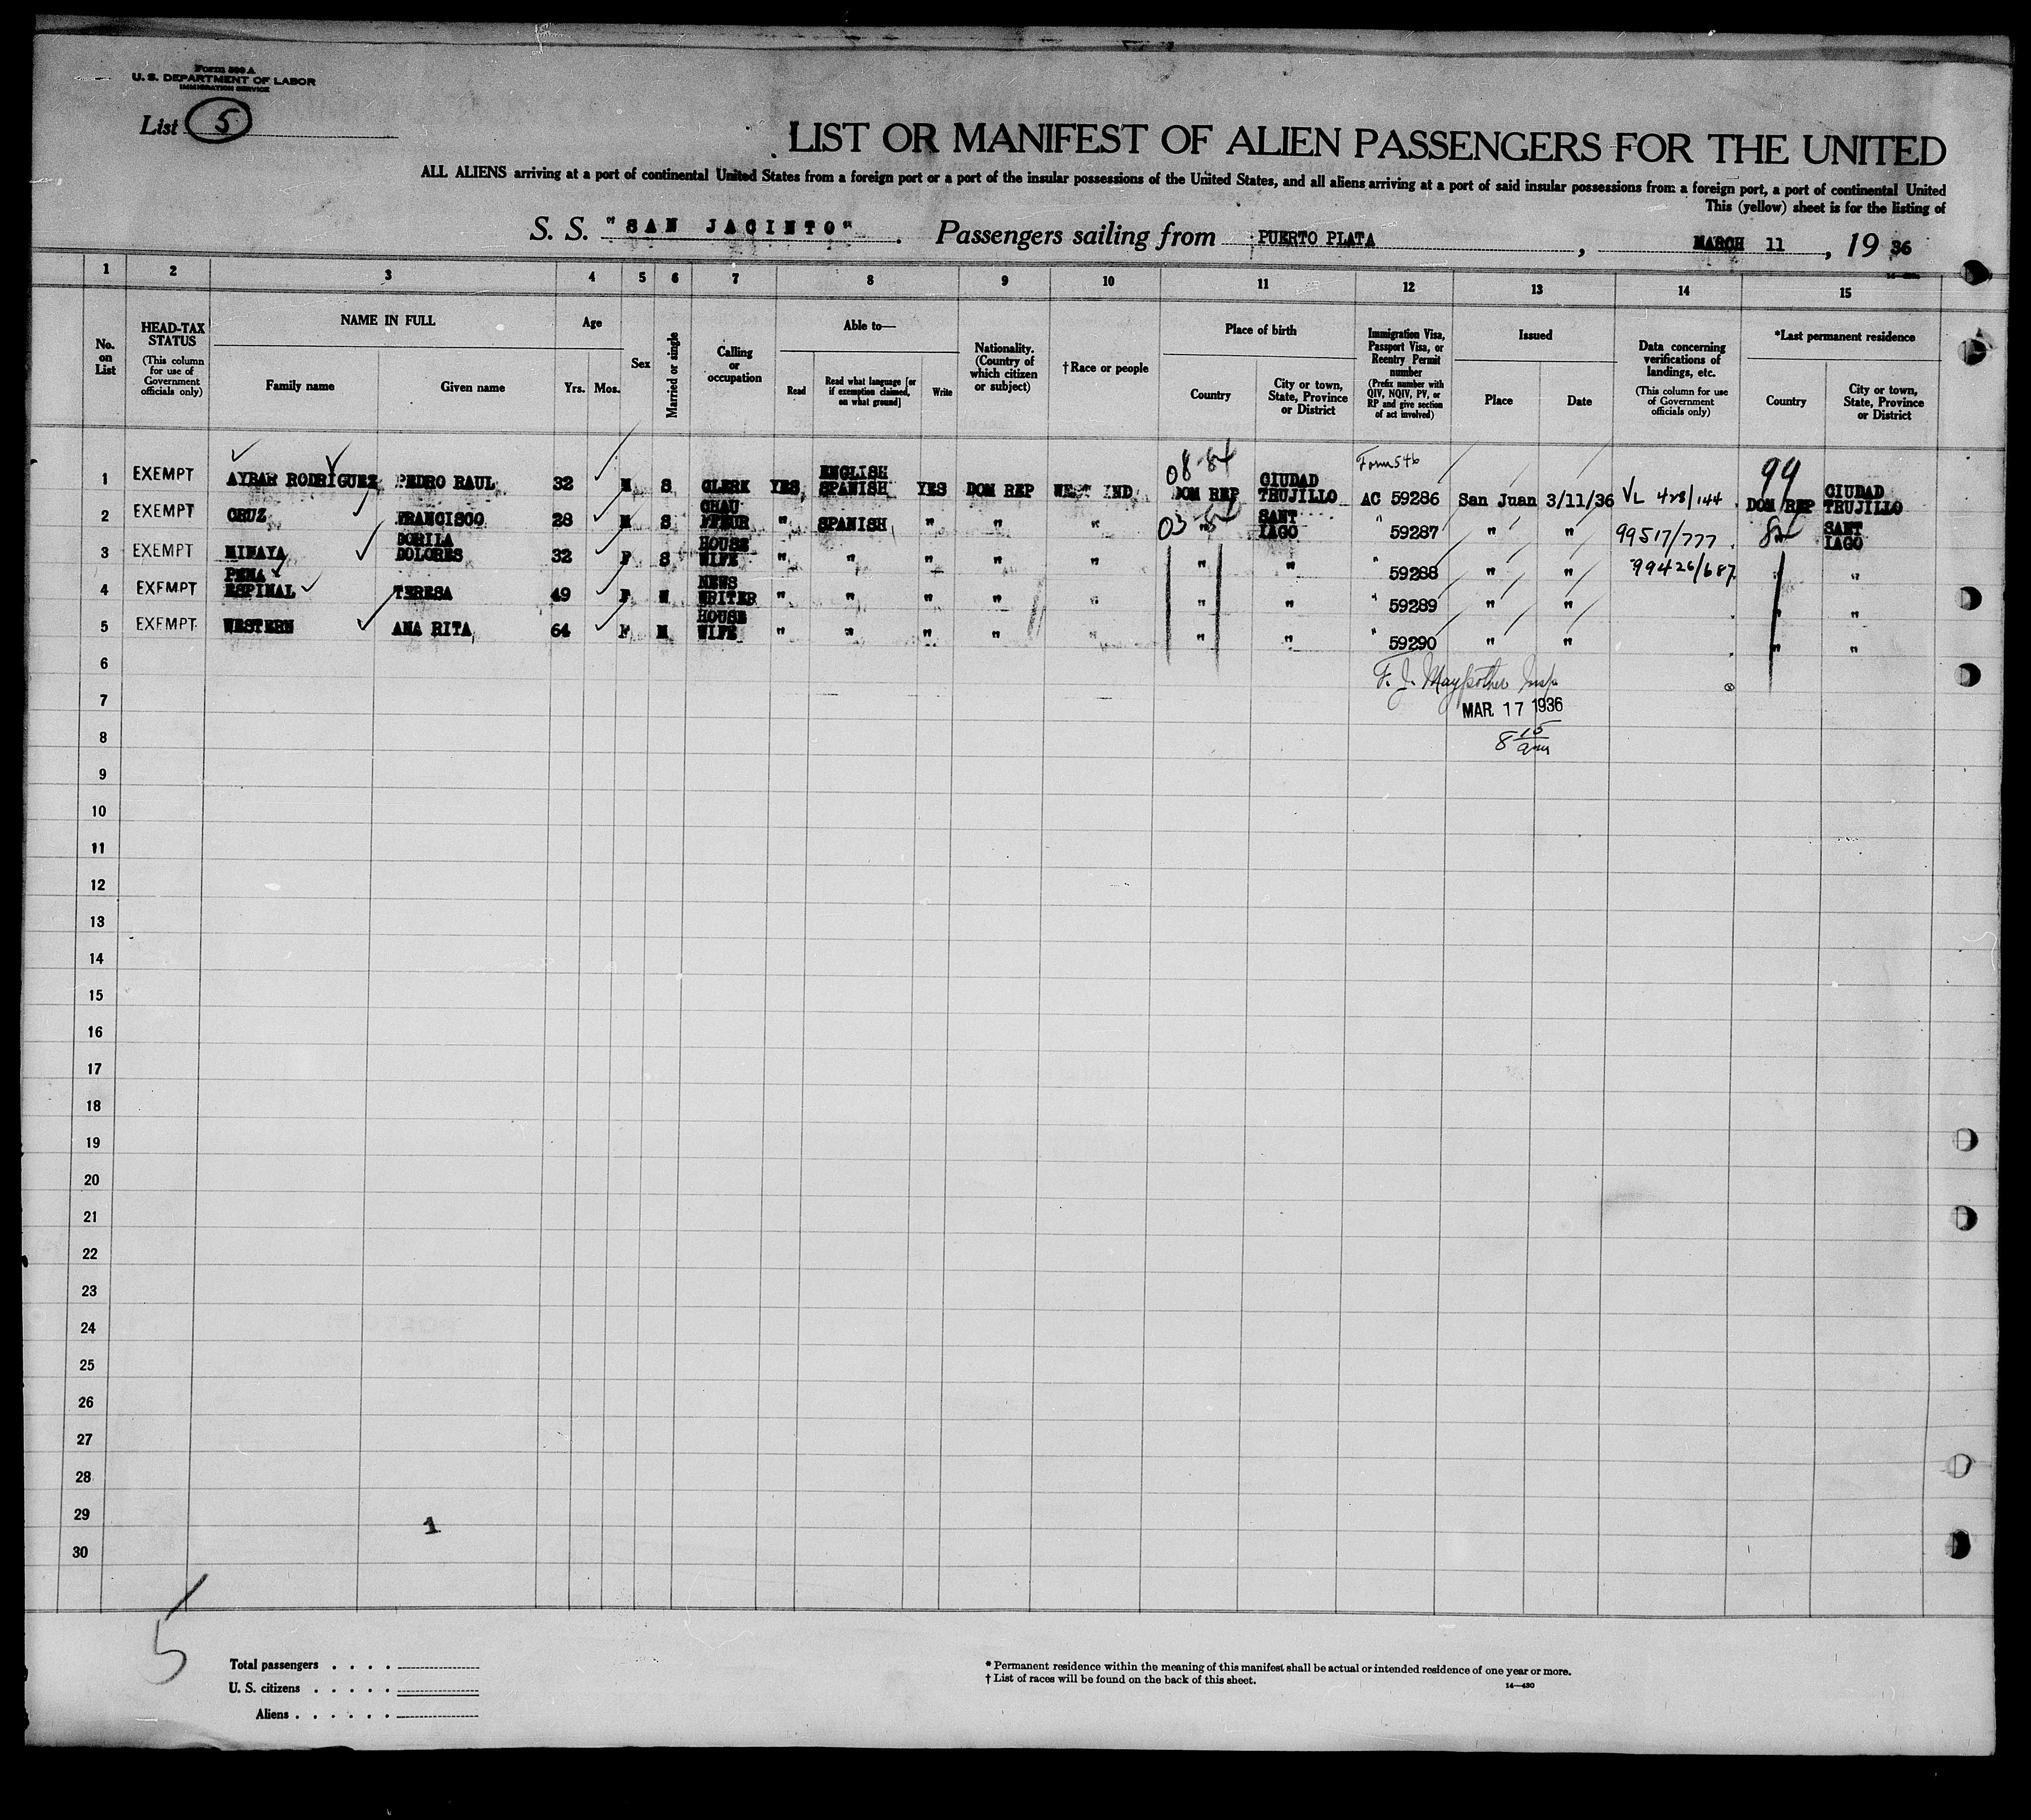 Form 500 A
U. S. DEPARTMENT OF LABOR
IMMIGRATION SERVICE
List 5
LIST OR MANIFEST OF ALIEN PASSENGERS FOR THE UNITED
ALL ALIENS arriving at a port of continental United States from a foreign port or a port of the insular possessions of the United States, and all aliens arriving at a port of said insular possessions from a foreign port, a port of continental United
This (yellow) sheet is for the listing of
S. S. "SAN JACINTO". Passengers sailing from PUERTO PLATA, MARCH 11, 19 36
1 2 3 4 5 6 7 8 9 10 11 12 13 14 15
No. on List
HEAD-TAX STATUS (This column for use of Government officials only)
NAME IN FULL
Family name
Given name
Age
Yrs. Mos.
Sex
Married or single
Calling or occupation
Able to—
Read
Read what language [or if exemption claimed, on what ground]
Write
Nationality. (Country of which citizen or subject)
† Race or people
Place of birth
Country
City or town, State, Province or District
Immigration Visa, Passport Visa, or Reentry Permit number (Prefix number with QIV, NQIV, PV, or RP and give section of act involved)
Issued
Place
Date
Data concerning verifications of landings, etc. (This column for use of Government officials only)
*Last permanent residence
Country
City or town, State, Province or District
08-84 Form 546 99
1 EXEMPT AYBAR RODRIGUEZ PEDRO RAUL 32 M S CLERK YES ENGLISH SPANISH YES DOM REP WEST IND DOM REP CIUDAD TRUJILLO AC 59286 San Juan 3/11/36 VL 428/144 DOM REP CIUDAD TRUJILLO
2 EXEMPT CRUZ FRANCISCO 28 M S CHAU FFEUR " SPANISH " " " 03 " SANT IAGO " 59287 " " 99517/777 84 SANT IAGO
3 EXEMPT MINAYA DORILA DOLORES 32 F S HOUSE WIFE " " " " " " " " 59288 " " 99426/687 " "
4 EXEMPT PENA ESPINAL TERESA 49 F M NEWS WRITER " " " " " " " " 59289 " " " "
5 EXEMPT WESTERN ANA RITA 64 F M HOUSE WIFE " " " " " " " " 59290 " " " "
6
F. J. Maypother Insp
7
MAR 17 1936
8
8 15 am
9
10
11
12
13
14
15
16
17
18
19
20
21
22
23
24
25
26
27
28
29
1
30
5
Total passengers . . . .
U. S. citizens . . . . .
Aliens . . . . . .
* Permanent residence within the meaning of this manifest shall be actual or intended residence of one year or more.
† List of races will be found on the back of this sheet.
14—430